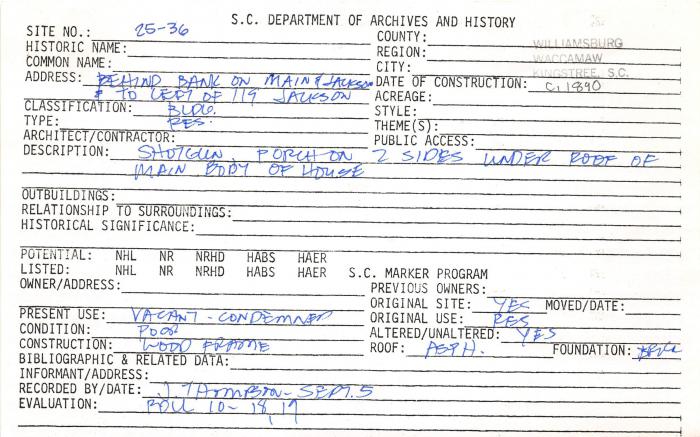 S.C. DEPARTMENT OF ARCHIVES AND HISTORY
SITE NO.: 25-36 COUNTY: WILLIAMSBURG
HISTORIC NAME: REGION: WACCAMAW
COMMON NAME: CITY: KINGSTREE, S.C.
ADDRESS: BEHIND BANK ON MAIN & JACKSON DATE OF CONSTRUCTION: C. 1890
& TO LEFT OF 119 JACKSON ACREAGE:
CLASSIFICATION: BLDG. STYLE:
TYPE: RES. THEME(S):
ARCHITECT/CONTRACTOR: PUBLIC ACCESS:
DESCRIPTION: SHOTGUN. PORCH ON 2 SIDES UNDER ROOF OF
MAIN BODY OF HOUSE
OUTBUILDINGS:
RELATIONSHIP TO SURROUNDINGS:
HISTORICAL SIGNIFICANCE:
POTENTIAL: NHL NR NRHD HABS HAER
LISTED: NHL NR NRHD HABS HAER S.C. MARKER PROGRAM
OWNER/ADDRESS: PREVIOUS OWNERS:
ORIGINAL SITE: YES MOVED/DATE:
PRESENT USE: VACANT - CONDEMNED ORIGINAL USE: RES
CONDITION: POOR ALTERED/UNALTERED: YES
CONSTRUCTION: WOOD FRAME ROOF: ASPH. FOUNDATION:
BIBLIOGRAPHIC & RELATED DATA:
INFORMANT/ADDRESS:
RECORDED BY/DATE: J. THOMPSON - SEPT. 5
EVALUATION: ROLL 10-18, 19